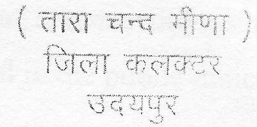 ( तारा चन्द मीणा )
जिला कलक्टर
उदयपुर